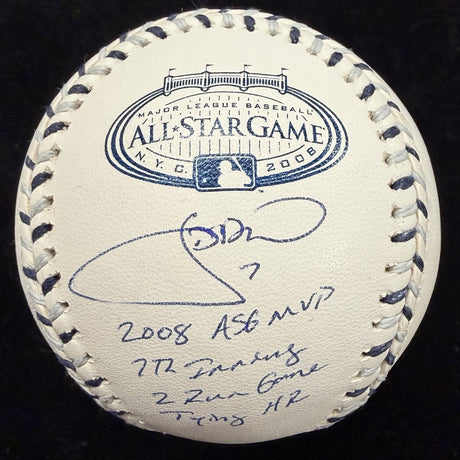 MAJOR LEAGUE BASEBALL
ALL★STAR GAME
N.Y.C. 2008
7
2008 ASG MVP
7th Inning
2 Run Game
Tying HR